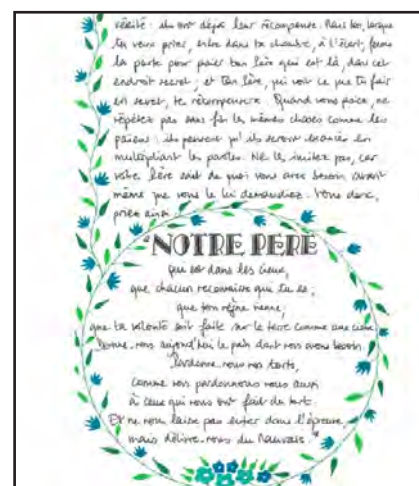 vérité : ils ont déjà leur récompense. Mais toi, lorsque
tu veux prier, entre dans ta chambre, à l'écart, ferme
la porte pour prier ton Père qui est là, dans cet
endroit secret ; et ton Père, qui voit ce que tu fais
en secret, te récompensera. Quand vous priez, ne
répétez pas sans fin les mêmes choses comme les
païens : ils pensent qu'ils seront exaucés en
multipliant les paroles. Ne les imitez pas, car
votre Père sait de quoi vous avez besoin avant
même que vous le lui demandiez. Vous donc,
priez ainsi :
"NOTRE PERE
qui es dans les cieux,
que chacun reconnaisse que tu es ;
que ton règne vienne,
que ta volonté soit faite sur la terre comme aux cieux.
Donne-nous aujourd'hui le pain dont nous avons besoin.
Pardonne-nous nos torts,
comme nous pardonnons nous aussi
à ceux qui nous ont fait du tort.
Et ne nous laisse pas entrer dans l'épreuve
mais délivre-nous du Mauvais."